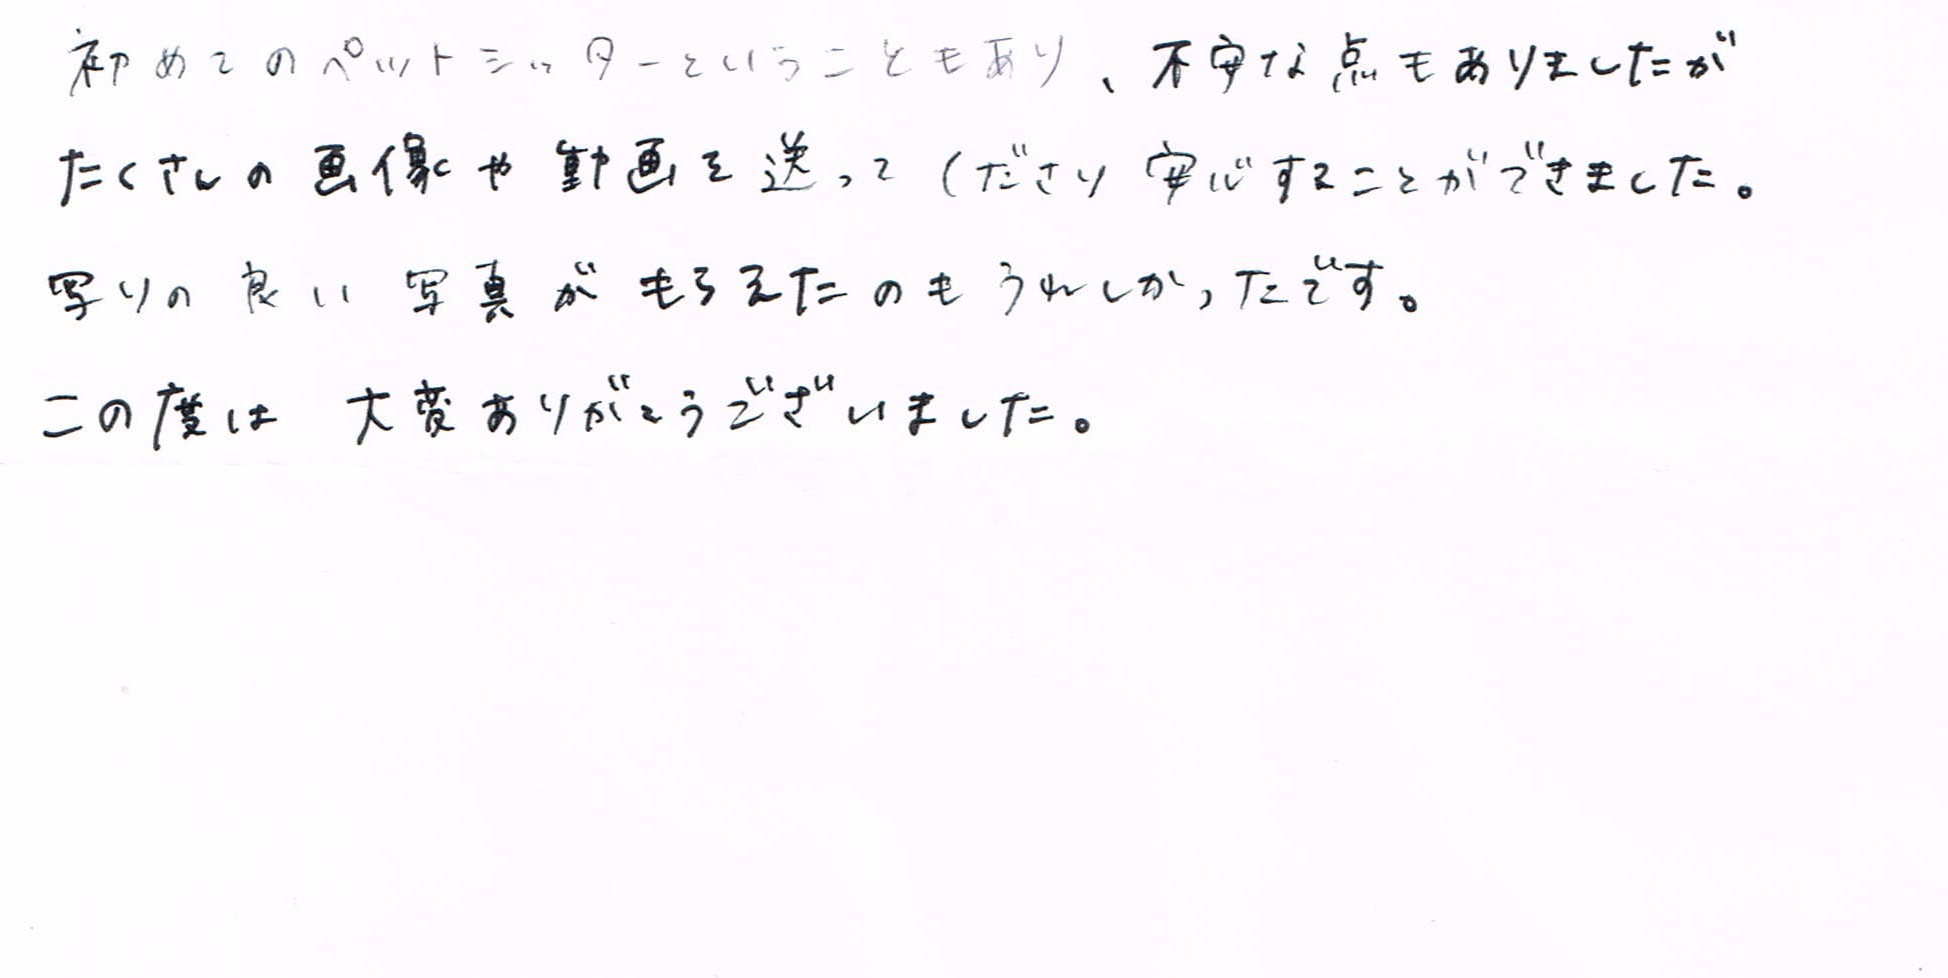 初めてのペットシッターということもあり、不安な点もありましたが
たくさんの画像や動画を送ってくださり安心することができました。
写りの良い写真がもらえたのもうれしかったです。
この度は大変ありがとうございました。